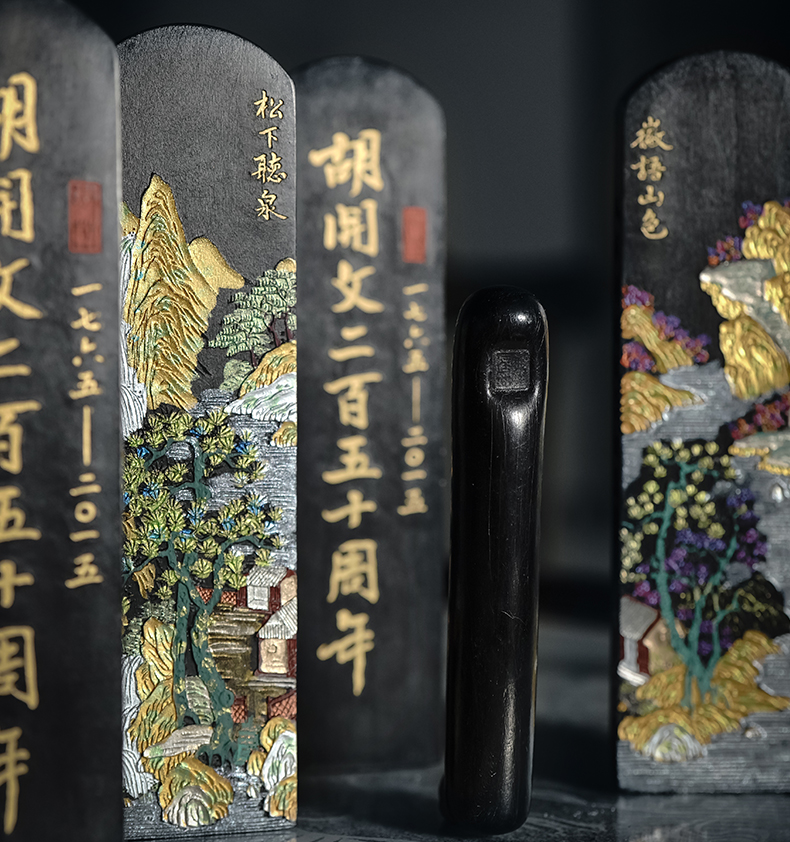 胡開文二百五十周年
一七六五——二〇一五
松下聽泉
胡開文二百五十周年
一七六五——二〇一五
語山色